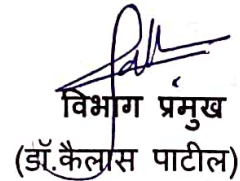 विभाग प्रमुख
(डॉ.कैलास पाटील)